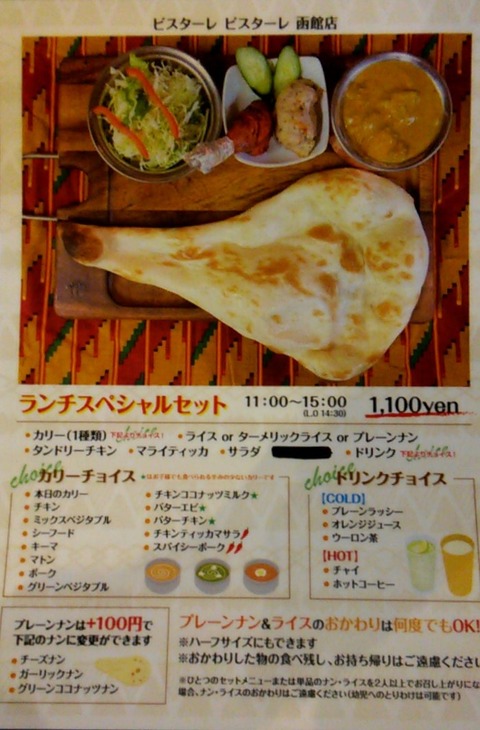 ビスターレ ビスターレ 函館店
ランチスペシャルセット 11:00〜15:00 (L.O 14:30) 1,100yen
・カリー(1種類) 下記よりチョイス! ・ライス or ターメリックライス or プレーンナン
・タンドリーチキン ・マライティッカ ・サラダ ・ドリンク 下記よりチョイス!
choice カリーチョイス
・本日のカリー
・チキン
・ミックスベジタブル
・シーフード
・キーマ
・マトン
・ポーク
・グリーンベジタブル
・チキンココナッツミルク★
・バターエビ★
・バターチキン★
・チキンティッカマサラ
・スパイシーポーク
choice ドリンクチョイス
【COLD】
・プレーンラッシー
・オレンジジュース
・ウーロン茶
【HOT】
・チャイ
・ホットコーヒー
プレーンナンは+100円で
下記のナンに変更ができます
・チーズナン
・ガーリックナン
・グリーンココナッツナン
プレーンナン&ライスのおかわりは何度でもOK!
※ハーフサイズにもできます
※おかわりした物の食べ残し、お持ち帰りはご遠慮ください
※ひとつのセットメニューまたは単品のナン・ライスを2人以上でお召し上がりにな
場合、ナン・ライスのおかわりはご遠慮ください(幼児へのとりわけは可能です)